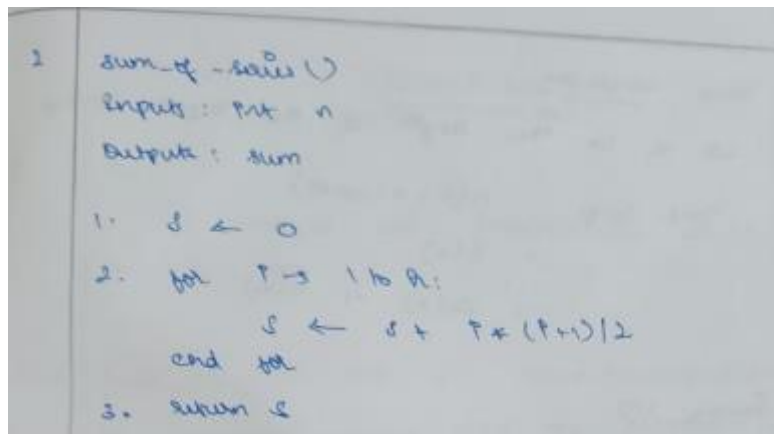 2 sum_of_series ()
Inputs : int n
Outputs : sum
1. S ← 0
2. for i → 1 to n:
S ← S + i * (i+1)/2
end for
3. return S